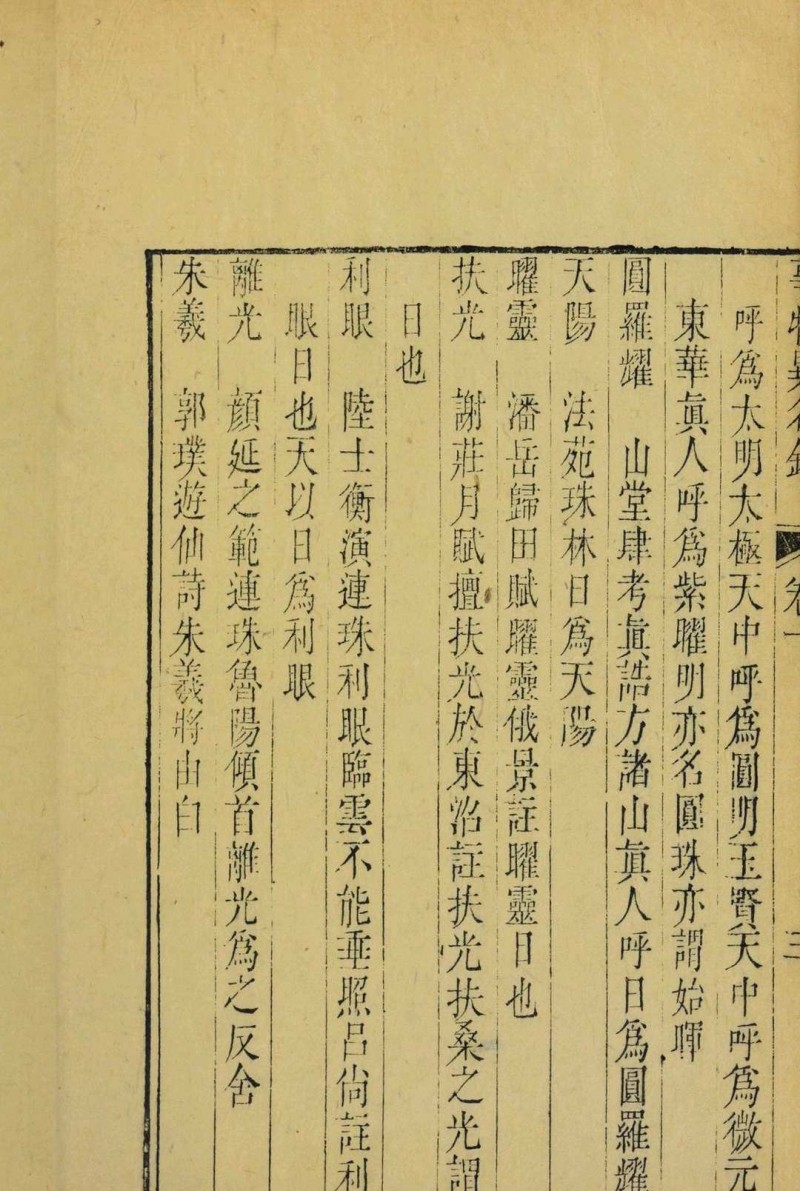 事物異名錄 卷一 三
呼爲太明太極天中呼爲圓明玉賢天中呼爲微元
東華眞人呼爲紫曜明亦名圓珠亦謂始暉
圓羅耀 山堂肆考眞誥方諸山眞人呼日爲圓羅耀
天陽 法苑珠林日爲天陽
曜靈 潘岳歸田賦曜靈俄景註曜靈日也
扶光 謝莊月賦擅扶光於東沼註扶光扶桑之光謂
日也
利眼 陸士衡演連珠利眼臨雲不能垂照呂尙註利
眼日也天以日爲利眼
離光 顔延之範連珠魯陽傾首離光爲之反舍
朱羲 郭璞遊仙詩朱羲將由白